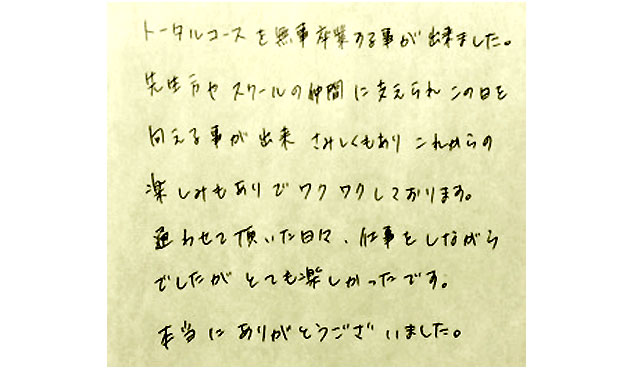 トータルコースを無事卒業する事が出来ました。
先生方やスクールの仲間に支えられこの日を
向える事が出来 さみしくもあり これからの
楽しみもありでワクワクしております。
通わせて頂いた日々、仕事をしながら
でしたがとても楽しかったです。
本当にありがとうございました。